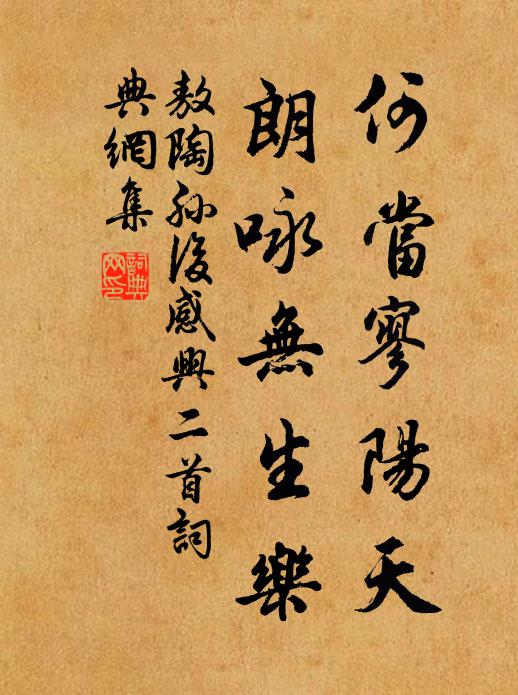 何當寥陽天
朗咏無生樂
敖陶孫後感興二首詞
典網集
詞典網印